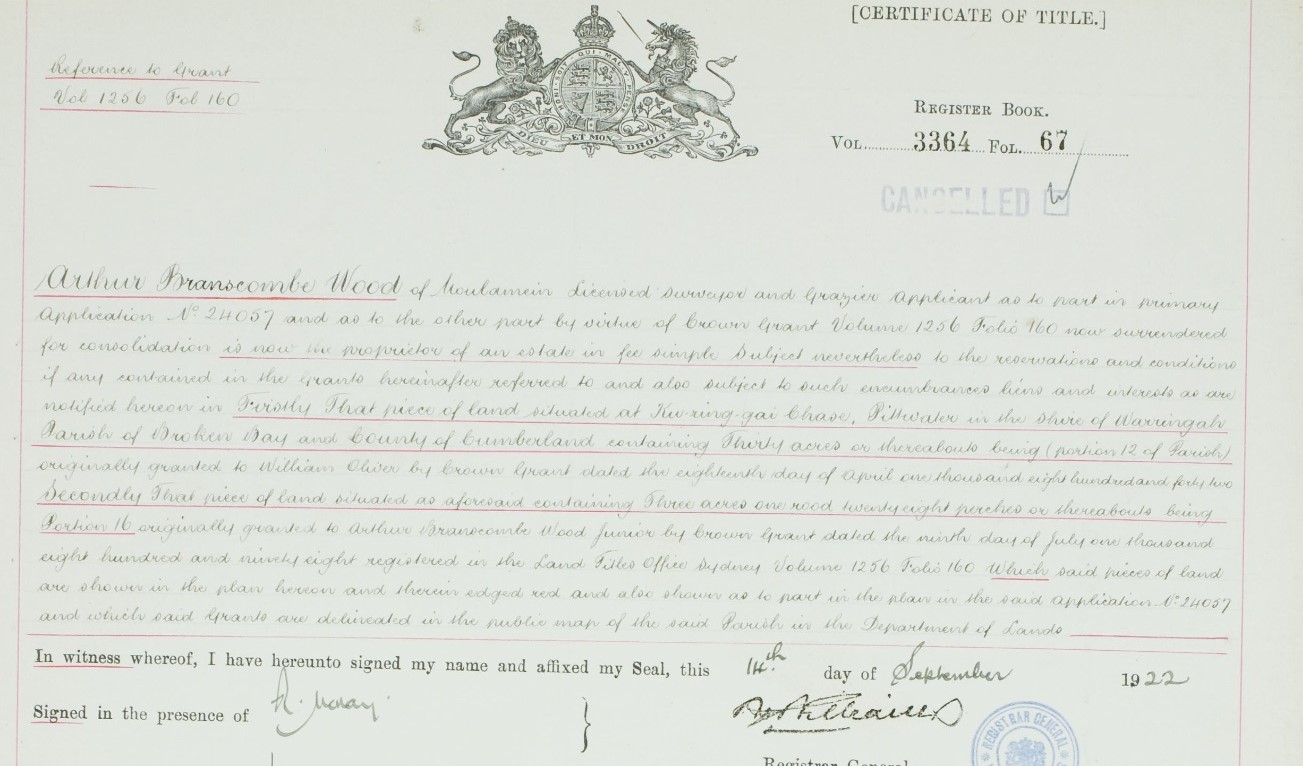 [CERTIFICATE OF TITLE.]
Reference to Grant
Vol 1256 Fol 160
HONI SOIT QUI MAL Y PENSE
DIEU ET MON DROIT
REGISTER BOOK.
VOL. 3364 FOL. 67
CANCELLED
Arthur Branscombe Wood of Moulamein Licensed Surveyor and Grazier Applicant as to part in primary
Application No. 24057 and as to the other part by virtue of Crown Grant Volume 1256 Folio 160 now surrendered
for consolidation is now the proprietor of an estate in fee simple Subject nevertheless to the reservations and conditions
if any contained in the Grants hereinafter referred to and also subject to such encumbrances liens and interests as are
notified hereon in Firstly That piece of land situated at Ku-ring-gai Chase, Pittwater in the Shire of Warringah
Parish of Broken Bay and County of Cumberland containing Thirty acres or thereabouts being (portion 12 of Parish)
originally granted to William Oliver by Crown Grant dated the eighteenth day of April one thousand eight hundred and forty two
Secondly That piece of land situated as aforesaid containing Three acres one rood twenty eight perches or thereabouts being
Portion 16 originally granted to Arthur Branscombe Wood Junior by Crown Grant dated the ninth day of July one thousand
eight hundred and ninety eight registered in the Land Titles Office Sydney Volume 1256 Folio 160 Which said pieces of land
are shown in the plan hereon and therein edged red and also shown as to part in the plan in the said Application No. 24057
and which said Grants are delineated in the public map of the said Parish in the Department of Lands
In witness whereof, I have hereunto signed my name and affixed my Seal, this 14th day of September 1922
Signed in the presence of
REGISTRAR GENERAL
Registrar General